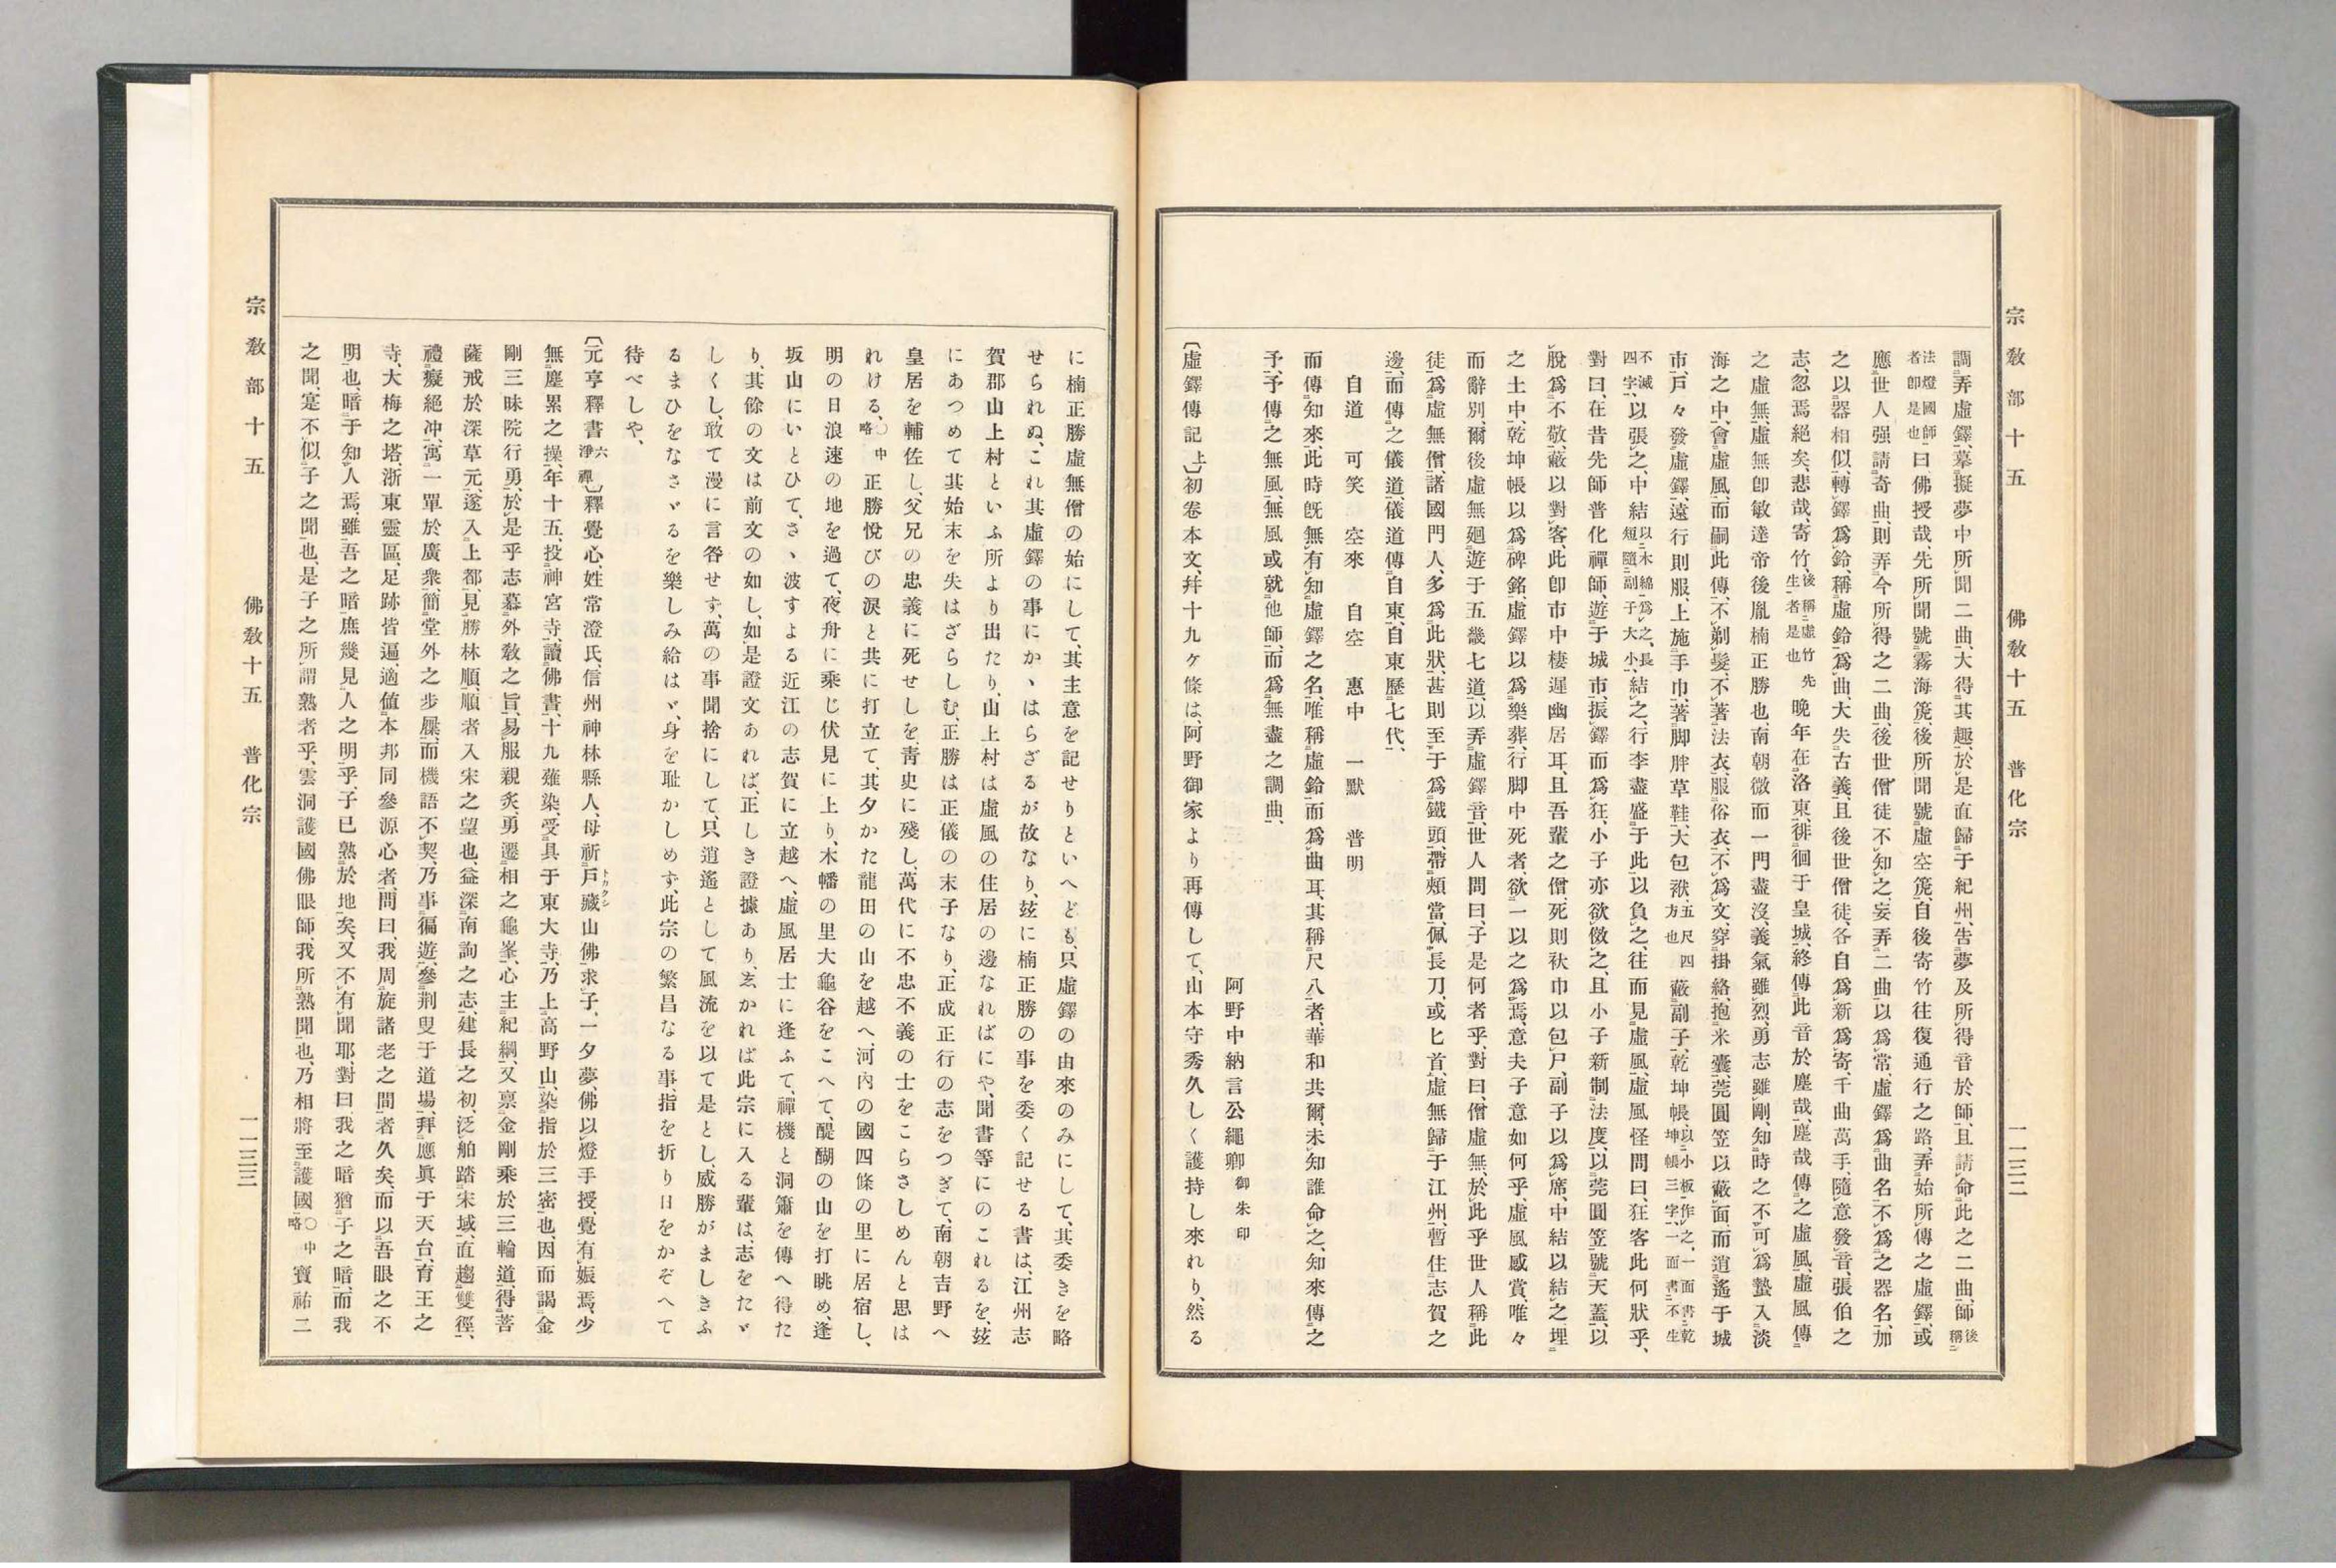 宗教部十五　佛教十五　普化宗　一一三二
調、弄虛鐸、摹擬夢中所聞二曲、大得其趣、於是直歸于紀州、告夢及所得音於師、且請命此之二曲、師後稱
法燈國師者卽是也曰、佛授哉、先所聞號霧海箎、後所聞號虛空箎、自後寄竹往復通行之路、弄始所傳之虛鐸、或
應世人强請奇曲、則弄今所得之二曲、後世僧徒不知之、妄弄二曲以爲常、虛鐸爲曲名、不爲之器名、加
之以器相似、轉鐸爲鈴、稱虛鈴爲曲、大失古義、且後世僧徒、各自爲新爲寄、千曲萬手、隨意發音、張伯之
志、忽焉絕矣、悲哉、寄竹後稱虛竹先生者是也晚年在洛東、徘徊于皇城、終傳此音於塵哉、塵哉傳之虛風、虛風傳
之虛無、虛無卽敏達帝後胤楠正勝也、南朝微而一門盡沒、義氣雖烈、勇志雖剛、知時之不可爲、蟄入淡
海之中、會虛風、而嗣此傳、不剃髮、不著法衣、服俗衣、不爲文、穿掛絡、抱米囊、莞圓笠以蔽面、而逍遙于城
市、戶々發虛鐸、遠行則服、上施手巾、著脚胖草鞋、大包袱五尺四方也蔽副子、乾坤帳以小板作之、一面書乾坤帳三字、一面書不生
不滅四字、以張之、中結以木綿爲之、長短隨副子大小、結之、行李盡盛于此、以負之、往而見虛風、虛風怪問曰、狂客此何狀乎、
對曰、在昔先師普化禪師、遊于城市、振鐸而爲狂、小子亦欲倣之、且小子新制法度、以莞圓笠、號天蓋、以
脫爲不敬、蔽以對客、此卽市中棲遲幽居耳、且吾輩之僧、死則袱巾以包尸、副子以爲席、中結以結之、埋
之土中、乾坤帳以爲碑銘、虛鐸以爲樂葬、行脚中死者、欲一以之爲焉、意夫子意如何乎、虛風感賞、唯々
而辭別、爾後虛無廻遊于五畿七道、以弄虛鐸音、世人問曰、子是何者乎、對曰、僧虛無、於此乎世人稱此
徒爲虛無僧、諸國門人、多爲此狀、甚則至于爲鐵頭、帶頰當、佩長刀、或匕首、虛無歸于江州、暫住志賀之
邊、而傳之儀道、儀道傳自東、自東歷七代、
自道　可笑　空來　自空　惠中　一默　普明
而傳知來、此時既無有知虛鐸之名、唯稱虛鈴而爲曲耳、其稱尺八者、華和共爾、未知誰命之、知來傳之
予、予傳之無風、無風或就他師、而爲無盡之調曲、
阿野中納言公繩卿御朱印
〔虛鐸傳記上〕初卷本文、幷十九ヶ條は、阿野御家より再傳して、山本守秀久しく護持し來れり、然る
に楠正勝虛無僧の始にして、其主意を記せりといへども、只虛鐸の由來のみにして、其委きを略
せられぬ、これ其虛鐸の事にかゝはらざるが故なり、玆に楠正勝の事を委く記せる書は、江州志
賀郡山上村といふ所より出たり、山上村は虛風の住居の邊なればにや、聞書等にのこれるを、玆
にあつめて其始末を失はざらしむ、正勝は正儀の末子なり、正成正行の志をつぎて、南朝吉野へ
皇居を輔佐し、父兄の忠義に死せしを、靑史に殘し、萬代に不忠不義の士をこらさしめんと思は
れける、〇中略正勝悅びの淚と共に打立て、其夕かた龍田の山を越へ、河內の國四條の里に居宿し、
明の日浪速の地を過て、夜舟に乘じ伏見に上り、木幡の里大龜谷をこへて、醍醐の山を打眺め、逢
坂山にいとひて、さゝ波すよる近江の志賀に立越へ、虛風居士に逢ふて、禪機と洞簫を傳へ得た
り、其餘の文は前文の如し、如是證文あれば、正しき證據あり、ゑかれば此宗に入る輩は、志をたゞ
しくし、敢て漫に言咎せず、萬の事聞捨にして、只逍遙として風流を以て是とし、威勝がましきふ
るまひをなさゞるを樂しみ給はゞ、身を耻かしめず、此宗の繁昌なる事、指を折り日をかぞへて
待べしや、
〔元亨釋書六淨禪〕釋覺心、姓常澄氏、信州神林縣人、母祈戶藏山佛求子、一夕夢、佛以燈手授、覺有娠焉、少
トカクシ
無塵累之操、年十五、投神宮寺、讀佛書、十九薙染、受具于東大寺、乃上高野山、染指於三密也、因而謁金
剛三昧院行勇、於是乎志慕外敎之旨、易服親炙、勇遷相之龜峯、心主紀綱、又稟金剛乘於三輪道、得菩
薩戒於深草元、遂入上都、見勝林順、順者入宋之望也、益深南詢之志、建長之初、泛舶踏宋域、直趨雙徑、
禮癡絕冲、寓一單於廣衆、簡堂外之步屧、而機語不契、乃事徧遊、參荆叟于道場、拜應眞于天台、育王之
寺、大梅之塔、浙東靈區、足跡皆遍、適値本邦同參源心者、問曰、我周旋諸老之間者久矣、而以吾眼之不
明也、暗于知人焉、雖吾之暗、庶幾見人之明乎、子已熟於地矣、又不有聞耶、對曰、我之暗猶子之暗、而我
之聞、寔不似子之聞也、是子之所謂熟者乎、雲洞護國佛眼師、我所熟聞也、乃相將至護國〇中略寶祐二
宗教部十五　佛教十五　普化宗　一一三三